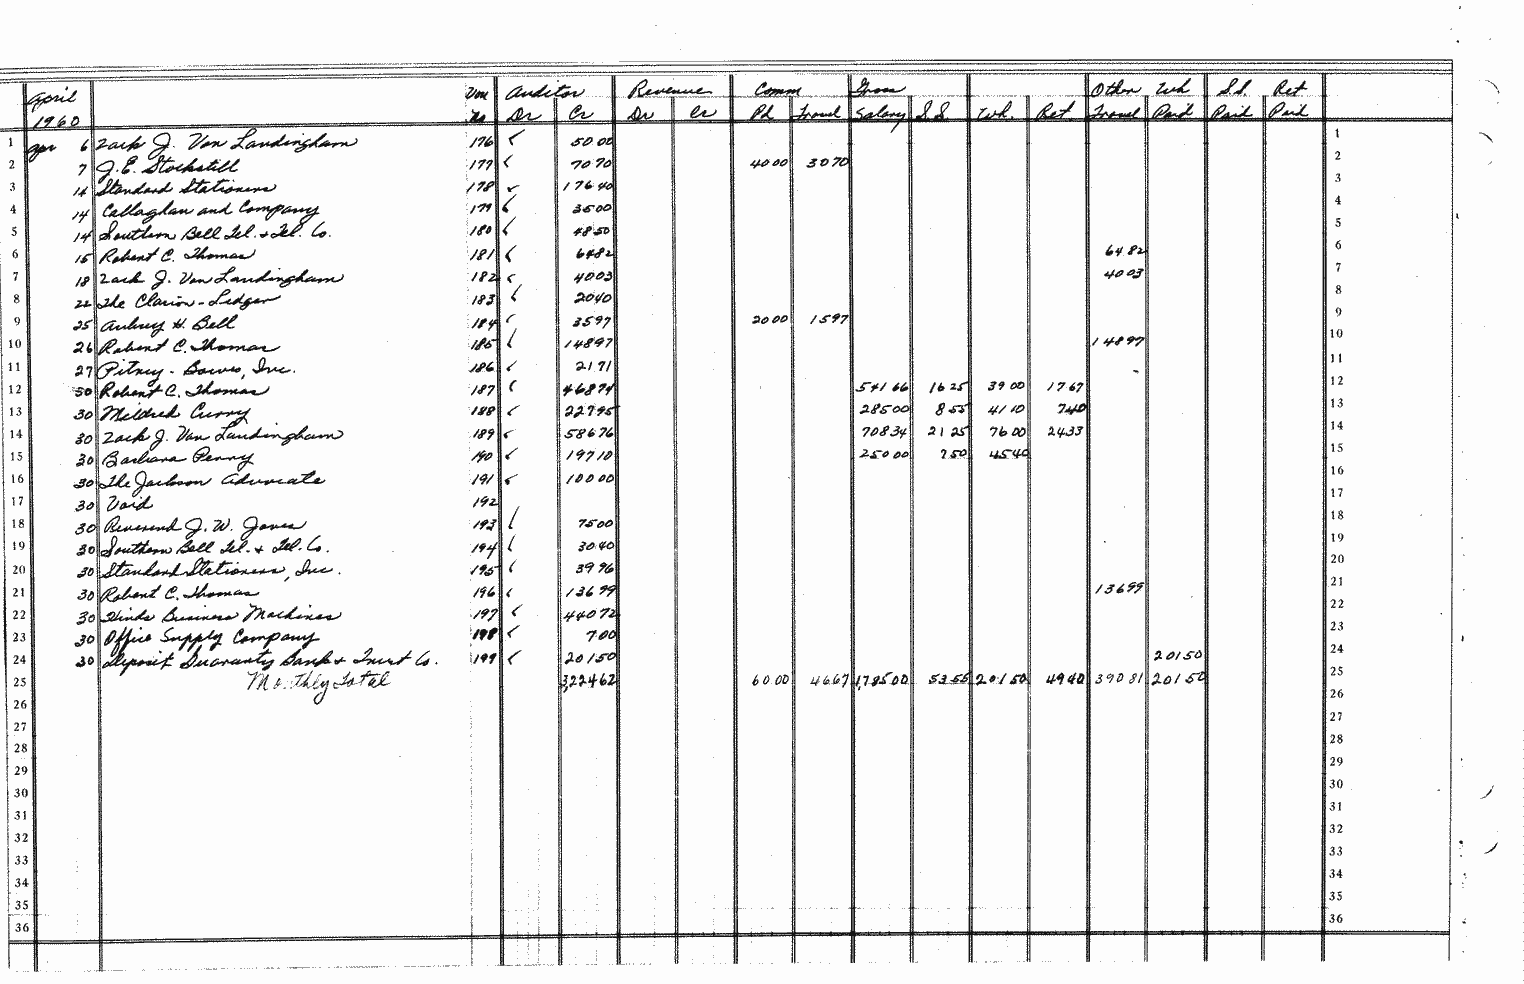 April Vou Auditor Revenue Comm Gross Other Wh S.S. Ret
1960 No Dr Cr Dr Cr Pd Travel Salary S.S. Wh. Ret Travel Paid Paid Paid
1 Apr 6 Zack J. Van Landingham 176 50 00 1
2 7 J.E. Stockstill 177 70 70 40 00 30 70 2
3 14 Standard Stationers 178 176 40 3
4 14 Callaghan and Company 179 35 00 4
5 14 Southern Bell Tel. & Tel. Co. 180 48 50 5
6 15 Robert C. Thomas 181 64 82 64 82 6
7 18 Zack J. Van Landingham 182 40 03 40 03 7
8 22 The Clarion-Ledger 183 20 40 8
9 25 Aubrey H. Bell 184 35 97 20 00 15 97 9
10 26 Robert C. Thomas 185 148 97 148 97 10
11 27 Pitney-Bowes, Inc. 186 21 71 11
12 30 Robert C. Thomas 187 468 74 541 66 16 25 39 00 17 67 12
13 30 Mildred Curry 188 227 95 285 00 8 55 41 10 7 40 13
14 30 Zack J. Van Landingham 189 586 76 708 34 21 25 76 00 24 33 14
15 30 Barbara Penny 190 197 10 250 00 7 50 45 40 15
16 30 The Jackson Advocate 191 100 00 16
17 30 Void 192 17
18 30 Reverend J. W. Jones 193 75 00 18
19 30 Southern Bell Tel. & Tel. Co. 194 30 40 19
20 30 Standard Stationers, Inc. 195 39 96 20
21 30 Robert C. Thomas 196 136 99 136 99 21
22 30 Hinds Business Machines 197 440 72 22
23 30 Office Supply Company 198 7 00 23
24 30 Deposit Guaranty Bank & Trust Co. 199 201 50 201 50 24
25 Monthly Total 3,224 62 60 00 46 67 1,785 00 53 55 201 50 49 40 390 81 201 50 25
26 26
27 27
28 28
29 29
30 30
31 31
32 32
33 33
34 34
35 35
36 36